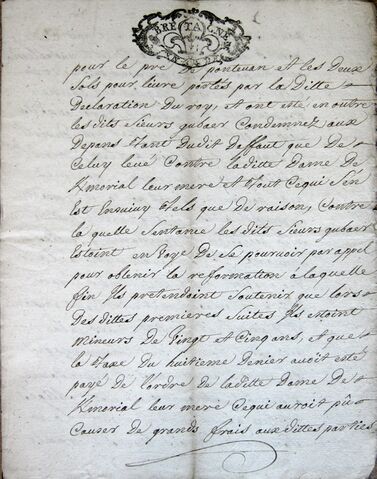 BRETAGNE
pour le pré de pontevan et les deux
sols pour livre portés par la ditte
Declaration du roy, et ont esté en outre
les dits sieurs gubaer Condemnez aux
depans tant dudit deffaut que de
Celuy levé Contre laditte Dame de
Kmorial leur mere et tout Cequi s'en
Est Ensuivy tels que de raison, Contre
la quelle sentance les dits sieurs gubaer
Estoint en voye de se pourvoir par appel
pour obtenir la refformation à laquelle
fin ils pretendoint soutenir que lors
des dittes premieres suites ils étoint
mineurs de vingt et cinq ans, et que
la taxe du huitieme denier avoit esté
payé de l'ordre de laditte dame de
Kmorial leur mere Cequi auroit pû
Causer de grands frais aux dittes parties